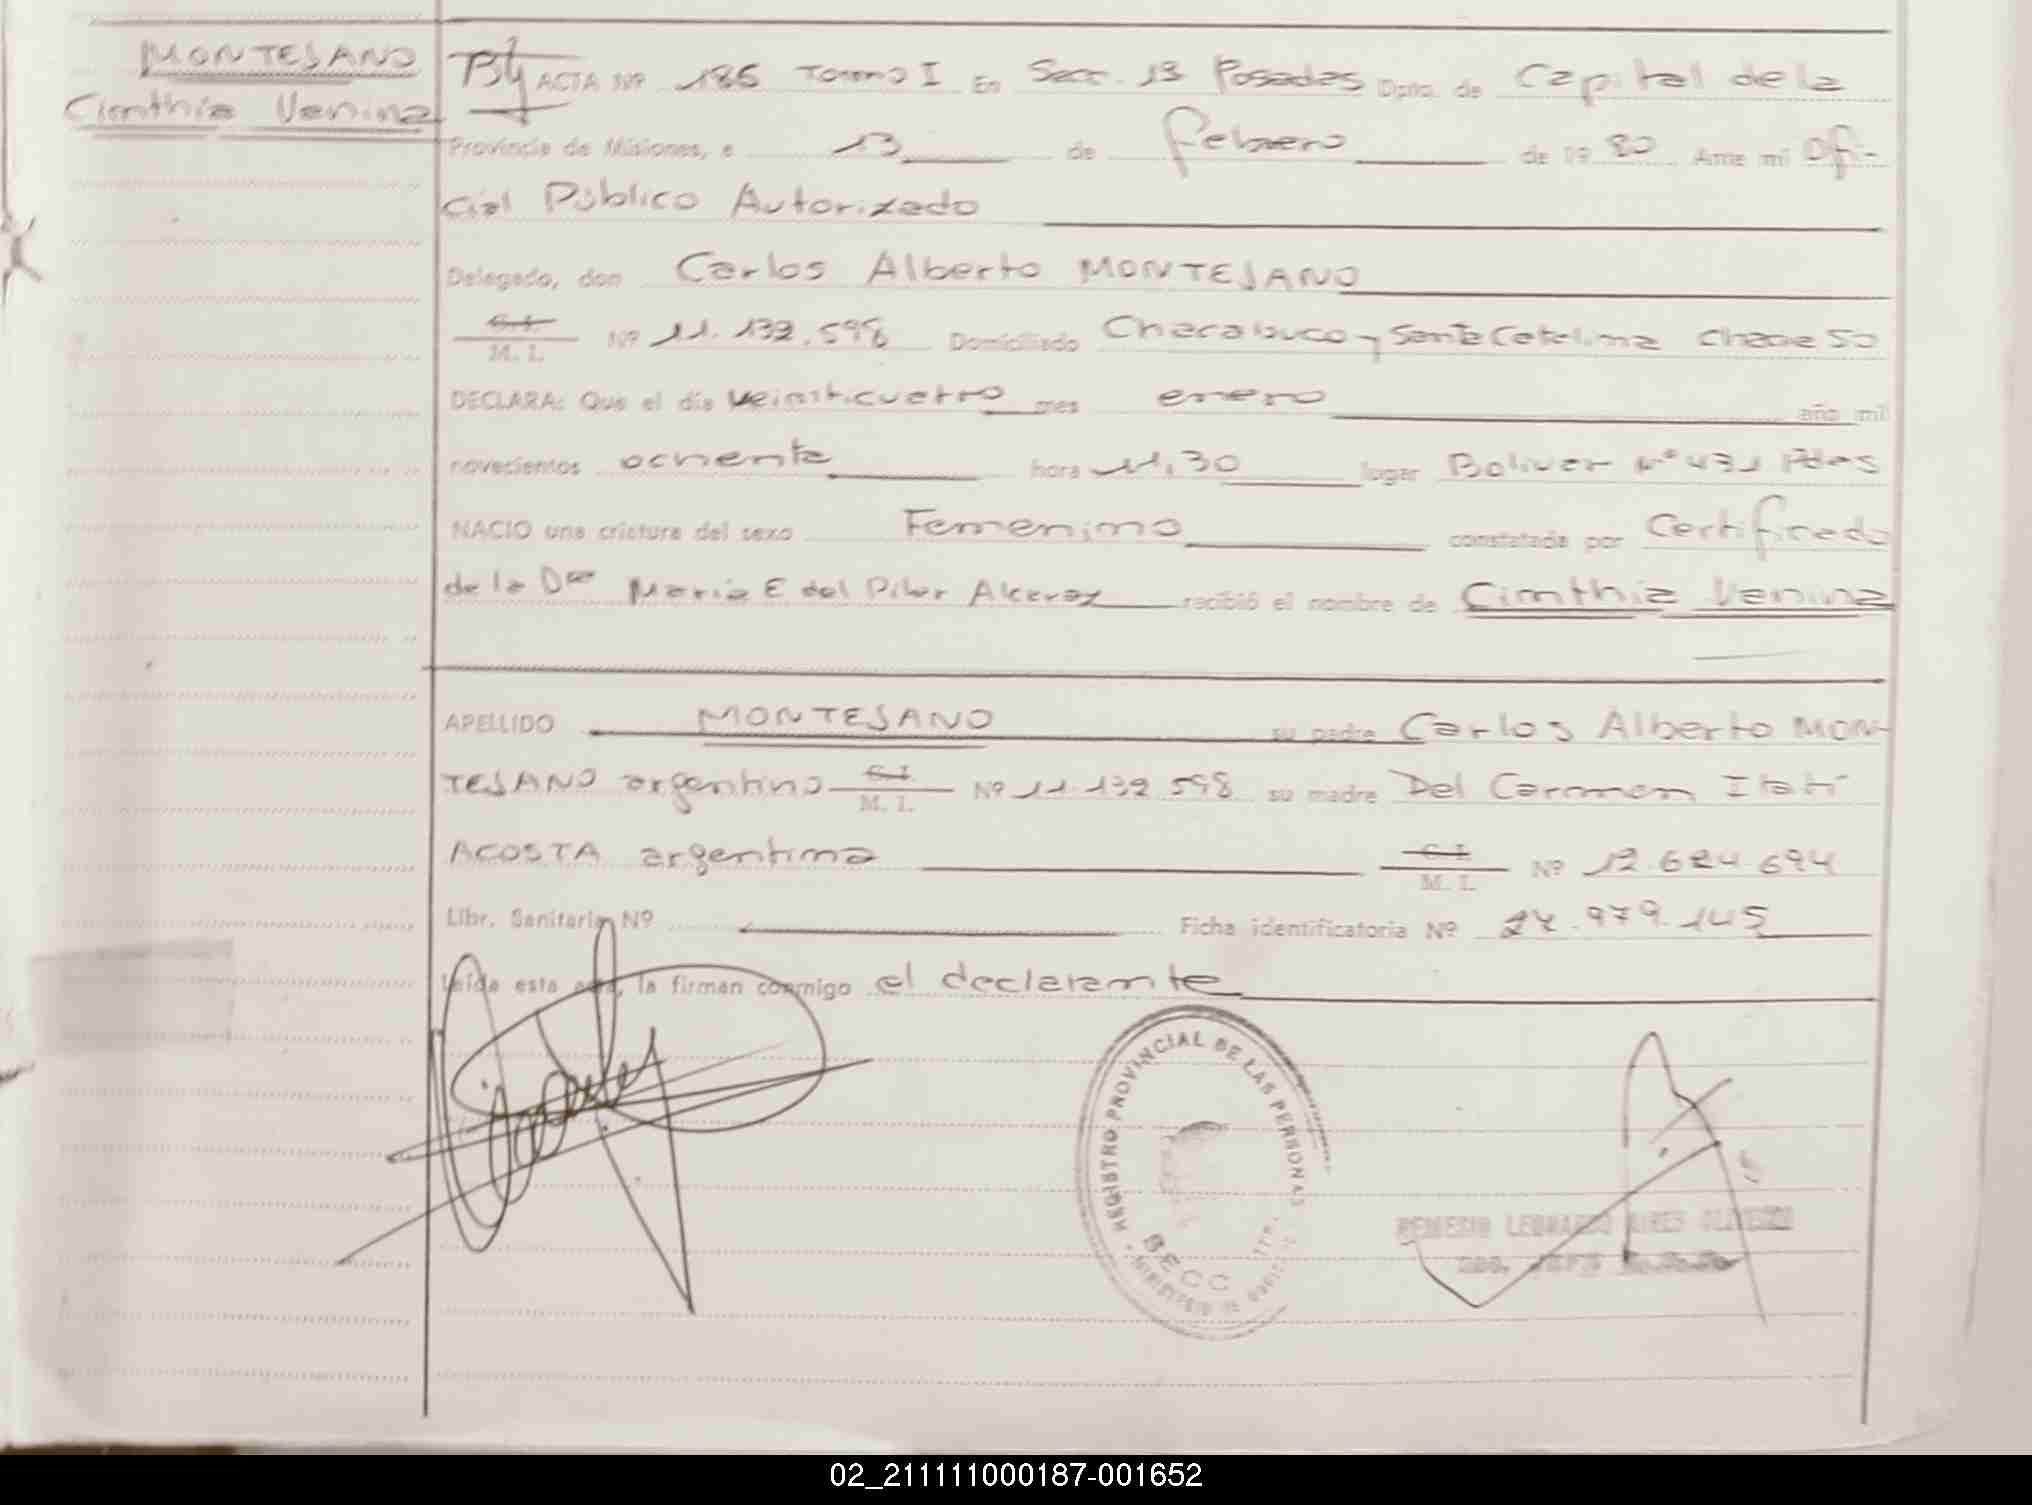 MONTESANO
Cinthia Venina
ACTA Nº 186 Tomo I En Secc. 1ª Posadas Dpto. de Capital de la
Provincia de Misiones, a 13 de febrero de 19 80 Ante mi Ofi-
cial Público Autorizado
Delegado, don Carlos Alberto MONTESANO
C.I.
M. I. Nº 11.132.598 Domiciliado Chacabuco y Santa Catalina Chacra 50
DECLARA: Que el día veinticuatro mes enero año mil
novecientos ochenta hora 11,30 lugar Bolivar Nº 431 Pdas
NACIO una criatura del sexo Femenino constatada por Certificado
de la Dra Maria E del Pilar Alcaraz recibió el nombre de Cinthia Venina
APELLIDO MONTESANO su padre Carlos Alberto MON-
TESANO argentino C.I. M. I. Nº 11.132.598 su madre Del Carmen Itatí
ACOSTA argentina C.I. M. I. Nº 12.624.694
Libr. Sanitaria Nº Ficha identificatoria Nº 27.979.145
Leída esta acta, la firman conmigo el declarante
REGISTRO PROVINCIAL DE LAS PERSONAS
LEONARDO
02_211111000187-001652